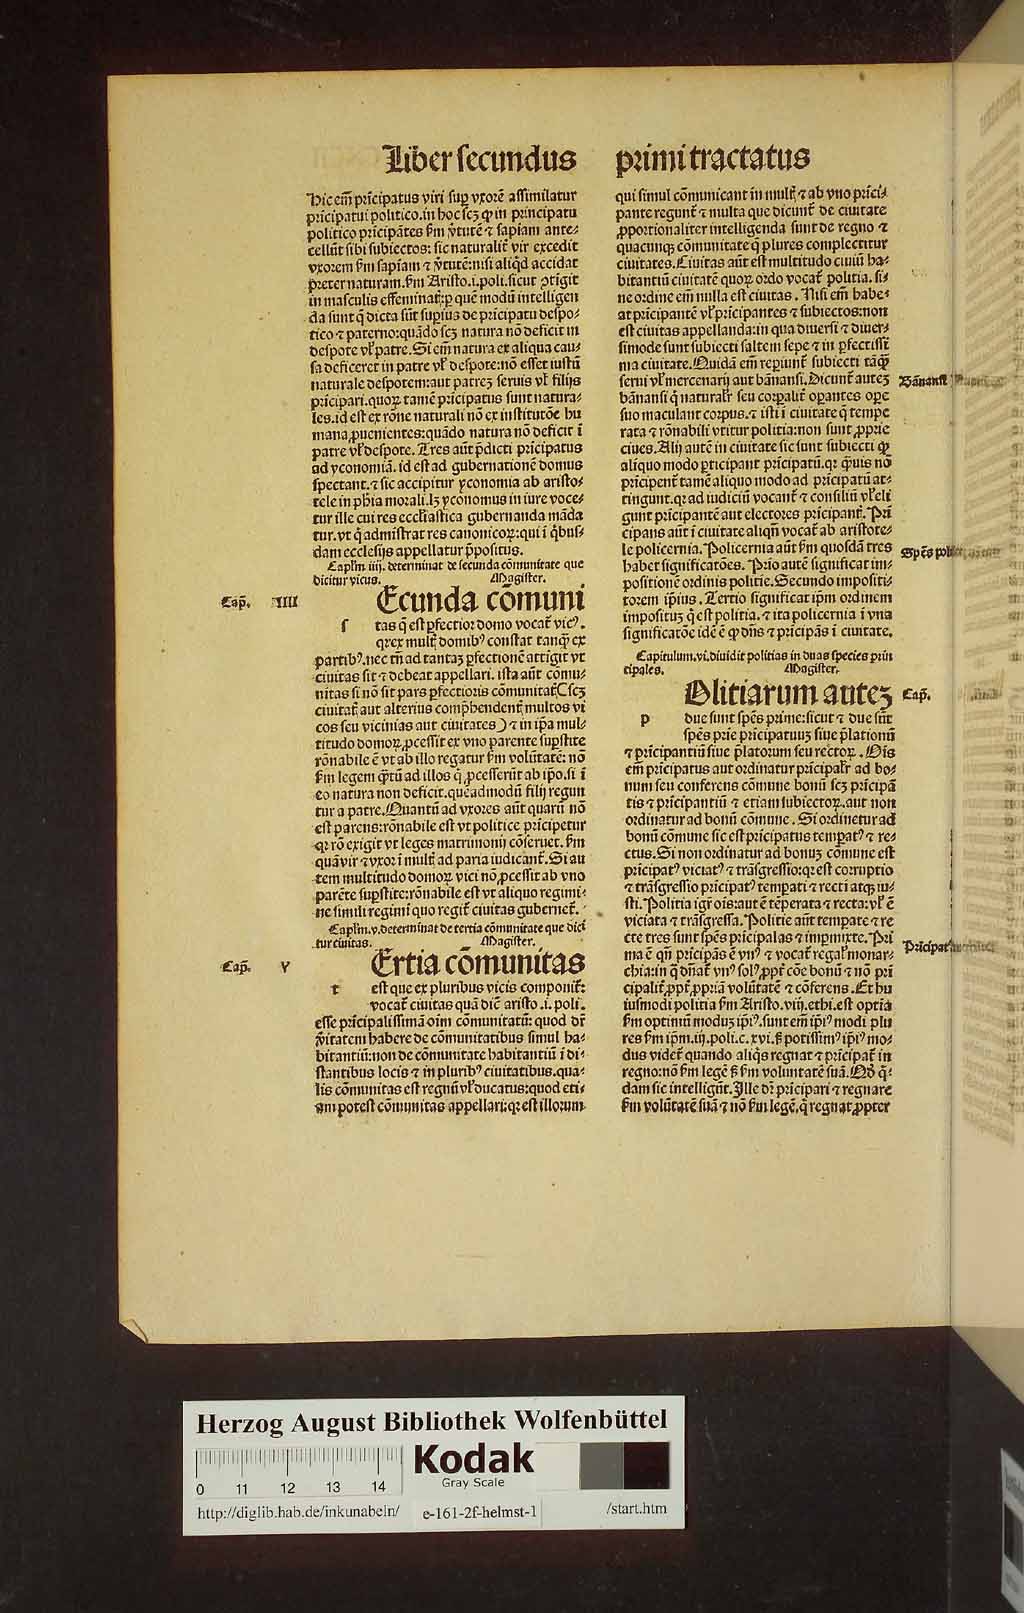 Liber secundus primi tractatus
Hic em̄ prīcipatus viri sup vxorē assimilatur
pricipatui politico.in hoc scꝫ ꝙ in principatu
politico pricipātes ẜm v̓tutē ⁊ sapiam ante⸗
cellūt sibi subiectos: sic naturalit̄ vir excedit
vxorem ẜm sapiam ⁊ v̓tutē:nisi aliqd̓ accidat
preter naturam.ẜm Aristo.i.poli.sicut ꝯtigit
in masculis effeminat̄:ꝑ quē modū intelligen
da sunt q̄ dicta sūt supius de pricipatu despo⸗
tico ⁊ paterno:quādo scꝫ natura nō deficit in
despote vl̓ patre.Si em̄ natura ex aliqua cau⸗
sa deficeret in patre vl̓ despote:nō esset iustū
naturale despotem:aut patreꝫ seruis vl̓ filijs
pricipari.quoꝝ tamē pricipatus sunt natura⸗
les.id est ex rōne naturali nō ex institutōe hu
mana ꝓuenientes:quādo natura nō deficit ī
patre vl̓ despote. Tres aūt p̄dicti pricipatus
ad yconomiā. id est ad gubernationē domus
spectant.⁊ sic accipitur yconomia ab aristo⸗
tele in ph̄ia morali.lꝫ yconomus in iure voce⸗
tur ille cui res eccl̓iastica gubernanda māda
tur.vt q̄ admīstrat res canonicoꝝ:qui ī q̓bus⸗
dam ecclesijs appellatur p̄positus.
Capl̓m.iiij.determinat de secunda cōmunitate que
dicitur vicus. Magister.
Cap̄. IIII
Ecunda cōmuni
s tas q̄ est ꝑfectior domo vocat̄ vicꝰ.
qr ex mult̄ domibꝰ constat tanq̄ ex
partibꝰ.nec tn̄ ad tantaꝫ ꝑfectionē attīgit vt
ciuitas sit ⁊ debeat appellari. ista aūt cōmu⸗
nitas si nō sit pars ꝑfectioris cōmunitat̄(scꝫ
ciuitat̄ aut alterius comp̄hendent̄ multos vi
cos seu vicinias aut ciuitates) ⁊ in ip̄a mul⸗
titudo domoꝝ ꝓcessit ex vno parente supstite
rōnabile ē vt ab illo regatur ẜm volūtatē: nō
ẜm legem q̄tū ad illos q̄ ꝓcesserūt ab ip̄o.si ī
eo natura non deficit.quēadmodū filij regun
tur a patre.Quantū ad vxores aūt quarū nō
est parens:rōnabile est vt politice pricipetur
qr rō exigit vt leges matrimonij cōseruet.ẜm
quā vir ⁊ vxor ī mult̄ ad paria iudicant̄.Si au
tem multitudo domoꝝ vici nō ꝓcessit ab vno
parēte supstite:rōnabile est vt aliquo regimi⸗
ne simili regimi quo regit̄ ciuitas gubernet̄.
Capl̓m.v.determinat de tertia cōmunitate que dici
tur ciuitas. Magister.
Cap̄. V
Ertia cōmunitas
t est que ex pluribus vicis componit̄:
vocat̄ ciuitas quā dicē aristo.i.poli.
esse pricipalissimā oīm cōmunitatū: quod dr̄
v̓itatem habere de cōmunitatibus simul ha⸗
bitantiū:non de cōmunitate habitantiū ī di⸗
stantibus locis ⁊ in pluribꝰ ciuitatibus.qua⸗
lis cōmunitas est regnū vl̓ ducatus:quod eti⸗
am potest cōmunitas appellari:qr est illorum
qui simul cōmunicant in mult̄ ⁊ ab vno prīci⸗
pante regunt̄ ⁊ multa que dicunt̄ de ciuitate
ꝓportionaliter intelligenda sunt de regno ⁊
quacunqꝫ cōmunitate q̄ plures complectitur
ciuitates.Ciuitas aūt est multitudo ciuiū ha⸗
bitantiū ciuitatē quoꝝ ordo vocat̄ politia. si⸗
ne ordine em̄ nulla est ciuitas. Nisi em̄ habe⸗
at pricipantē vl̓ pricipantes ⁊ subiectos:non
est ciuitas appellanda:in qua diuersi ⁊ diuer⸗
simode sunt subiecti saltem sepe ⁊ in ꝑfectissi
ma ciuitate.Quidā em̄ repiunt̄ subiecti tāq̄
serui vl̓ mercenarij aut bānausi.Dicunt̄ auteꝫ
bānausi q̄ naturalr̄ seu corpalit̄ opantes ope
suo maculant corpus.⁊ isti ī ciuitate q̄ tempe
rata ⁊ rōnabili vtitur politia:non sunt ꝓprie
ciues.Alij autē in ciuitate sic sunt subiecti ꝙ
aliquo modo ꝑticipant pricipatū.qr q̄uis nō
pricipent̄ tamē aliquo modo ad pricipatū at⸗
tingunt.qr ad iudiciū vocant̄ ⁊ consiliū vl̓ eli
gunt pricipantē aut electores pricipant̄. Pri
cipans aūt ī ciuitate aliqn̄ vocat̄ ab aristote⸗
le policernia. Policernia aūt ẜm quosdā tres
habet significatōes. Prīo autē significat im⸗
positionē ordinis politie.Secundo impositi⸗
torem ip̄ius. Tertio significat ip̄m ordinem
impositūꝫ q̄ est politia.⁊ ita policernia ī vna
significatōe idē ē ꝙ dn̄s ⁊ pricipās ī ciuitate.
Bānausi
Sp̄es
Capitulum.vi.diuidit politias in duas species prin
cipales. Magister.
Olitiarum auteꝫ
Cap̄.
p due sunt sp̄es prime:sicut ⁊ due sūt
sp̄es prīe pricipatuuꝫ siue p̄lationū
⁊ pricipantiū siue p̄latorum seu rectoꝝ. Oīs
em̄ pricipatus aut ordinatur pricipalr̄ ad bo⸗
num seu conferens cōmune bonū scꝫ pricipā
tis ⁊ pricipantiū ⁊ etiam subiectoꝝ.aut non
ordinatur ad bonū cōmune. Si ordinetur ad
bonū cōmune sic est pricipatus tempatꝰ ⁊ re⸗
ctus.Si non ordinatur ad bonuꝫ cōmune est
pricipatꝰ viciatꝰ ⁊ trāsgressio:qr est corruptio
⁊ trāsgressio pricipatꝰ tempati ⁊ recti atqꝫ iu⸗
sti. Politia igr̄ oīs:aut ē tēperata ⁊ recta:vl̓ ē
viciata ⁊ trāsgressa. Politie aūt tempate ⁊ re
cte tres sunt sp̄es pricipalas ⁊ impmixte. Pri
ma ē qn̄ pricipās ē vnꝰ ⁊ vocat̄ regal̓ monar⸗
chia:in q̄ dn̄at̄ vnꝰ solꝰ ꝓpt̄ cōe bonū ⁊ nō pri
cipalit̄ ꝓpt̄ ꝓpriā volūtatē ⁊ cōferens. Et hu
iusmodi politia ẜm Aristo.viij.ethi.est optīa
ẜm optimū moduꝫ ip̄iꝰ.sunt em̄ ip̄iꝰ modi plu
res ẜm ip̄m.iij.poli.c.xvi.ꝫ potissimꝰ ip̄iꝰ mo⸗
dus videt̄ quando aliq̄s regnat ⁊ pricipat̄ in
regno:nō ẜm legē ꝫ ẜm voluntatē suā.Qd̓ q̄⸗
dam sic intelligūt.Ille dr̄ pricipari ⁊ regnare
ẜm volūtatē suā ⁊ nō ẜm legē,q̄ regnat ꝓpter
Pricipat
Herzog August Bibliothek Wolfenbüttel
Kodak
Gray Scale
0 11 12 13 14
http://diglib.hab.de/inkunabeln/ e-161-2f-helmst-1 /start.htm